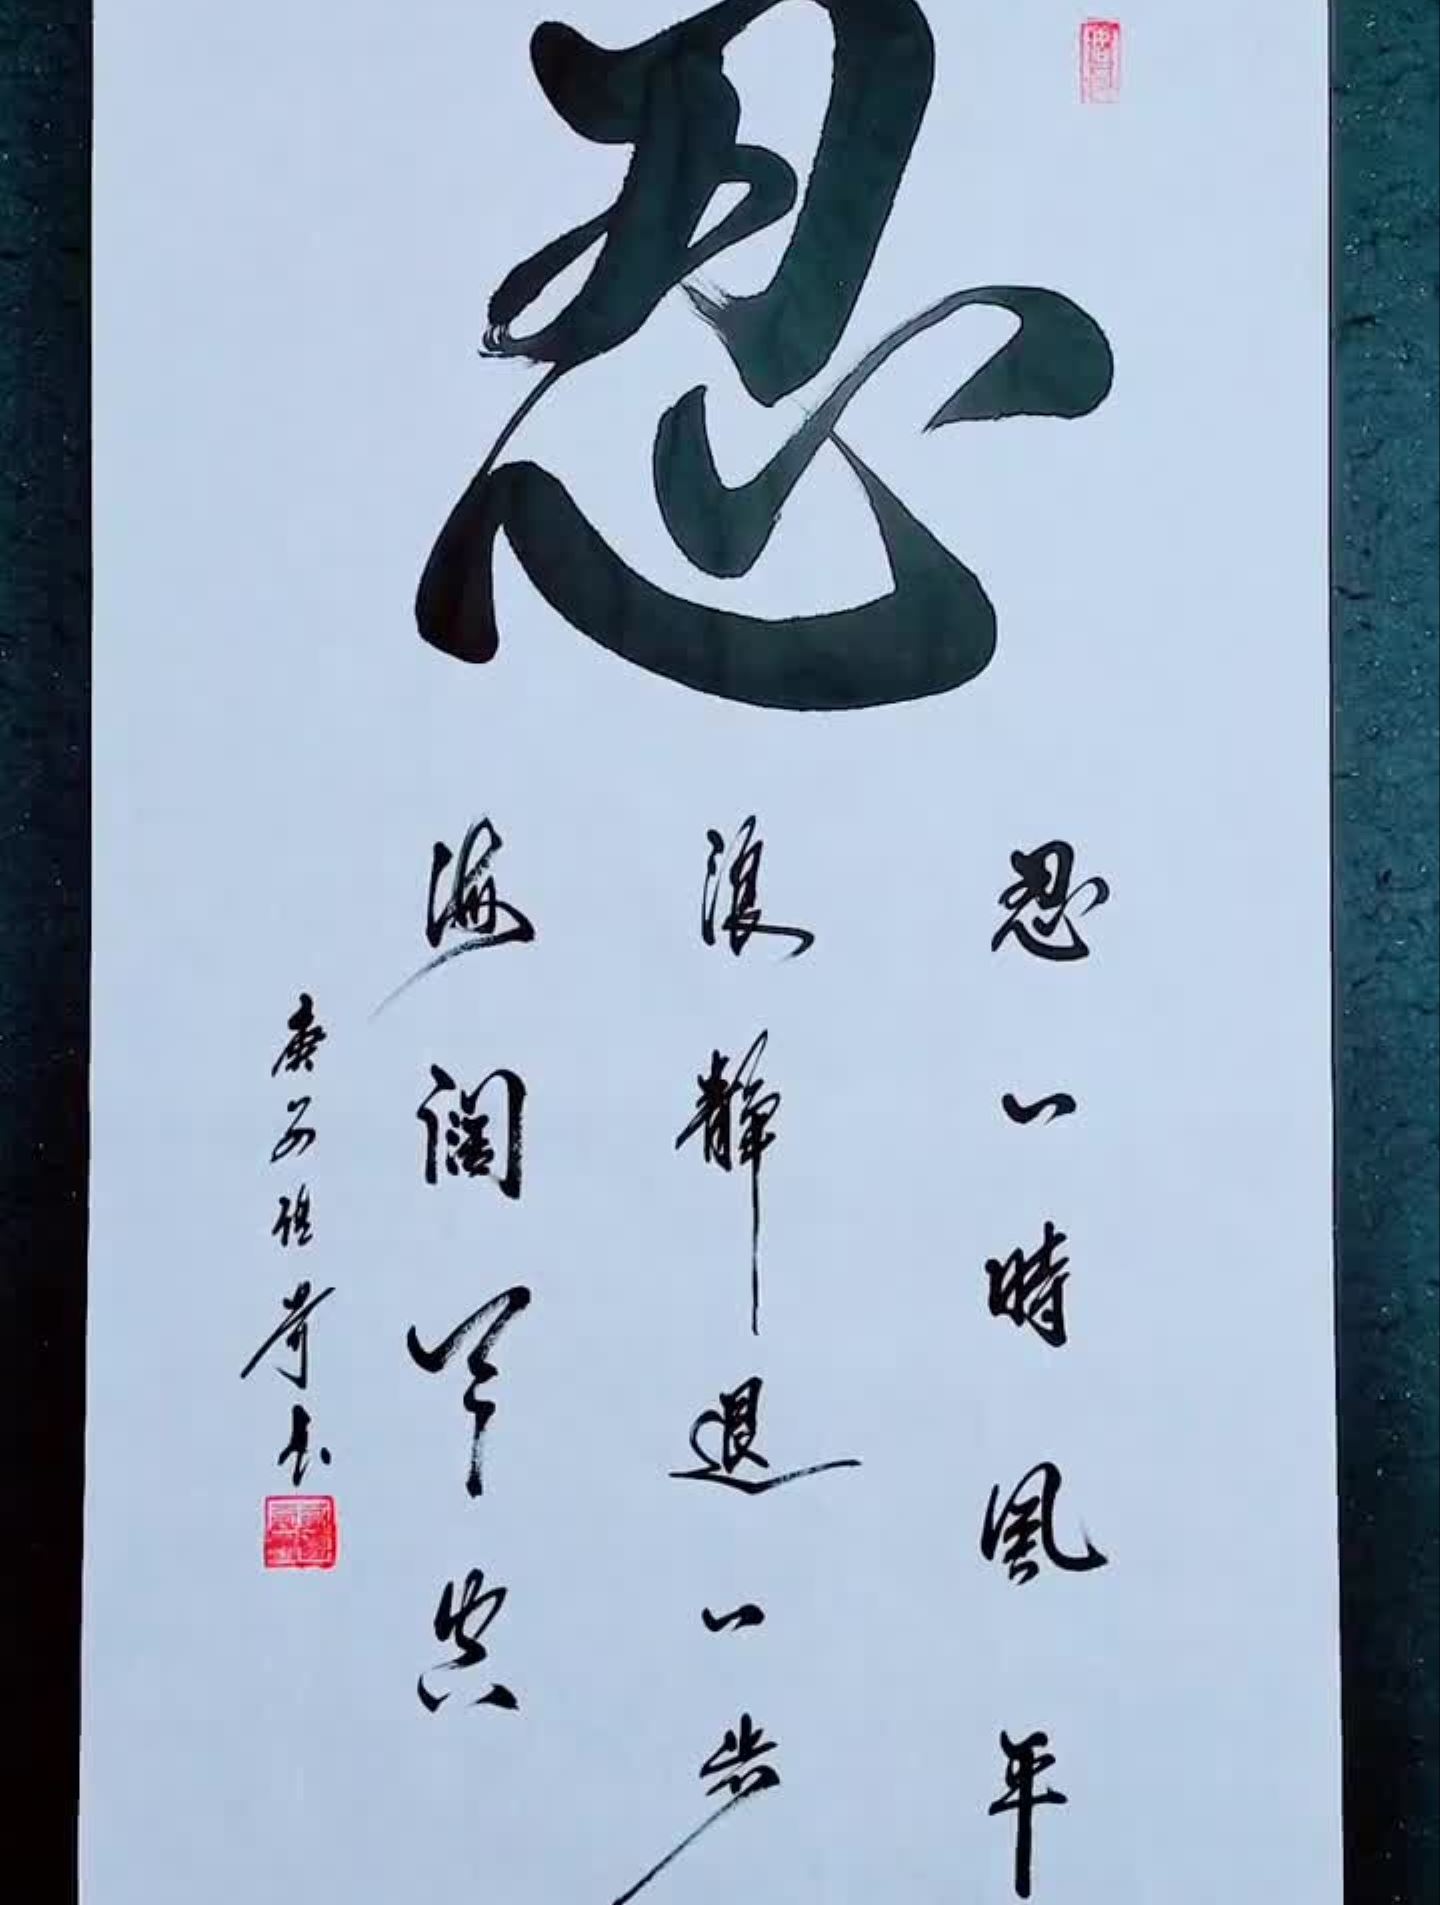 忍
忍一時風平
浪靜退一步
海闊天空
庚子
書